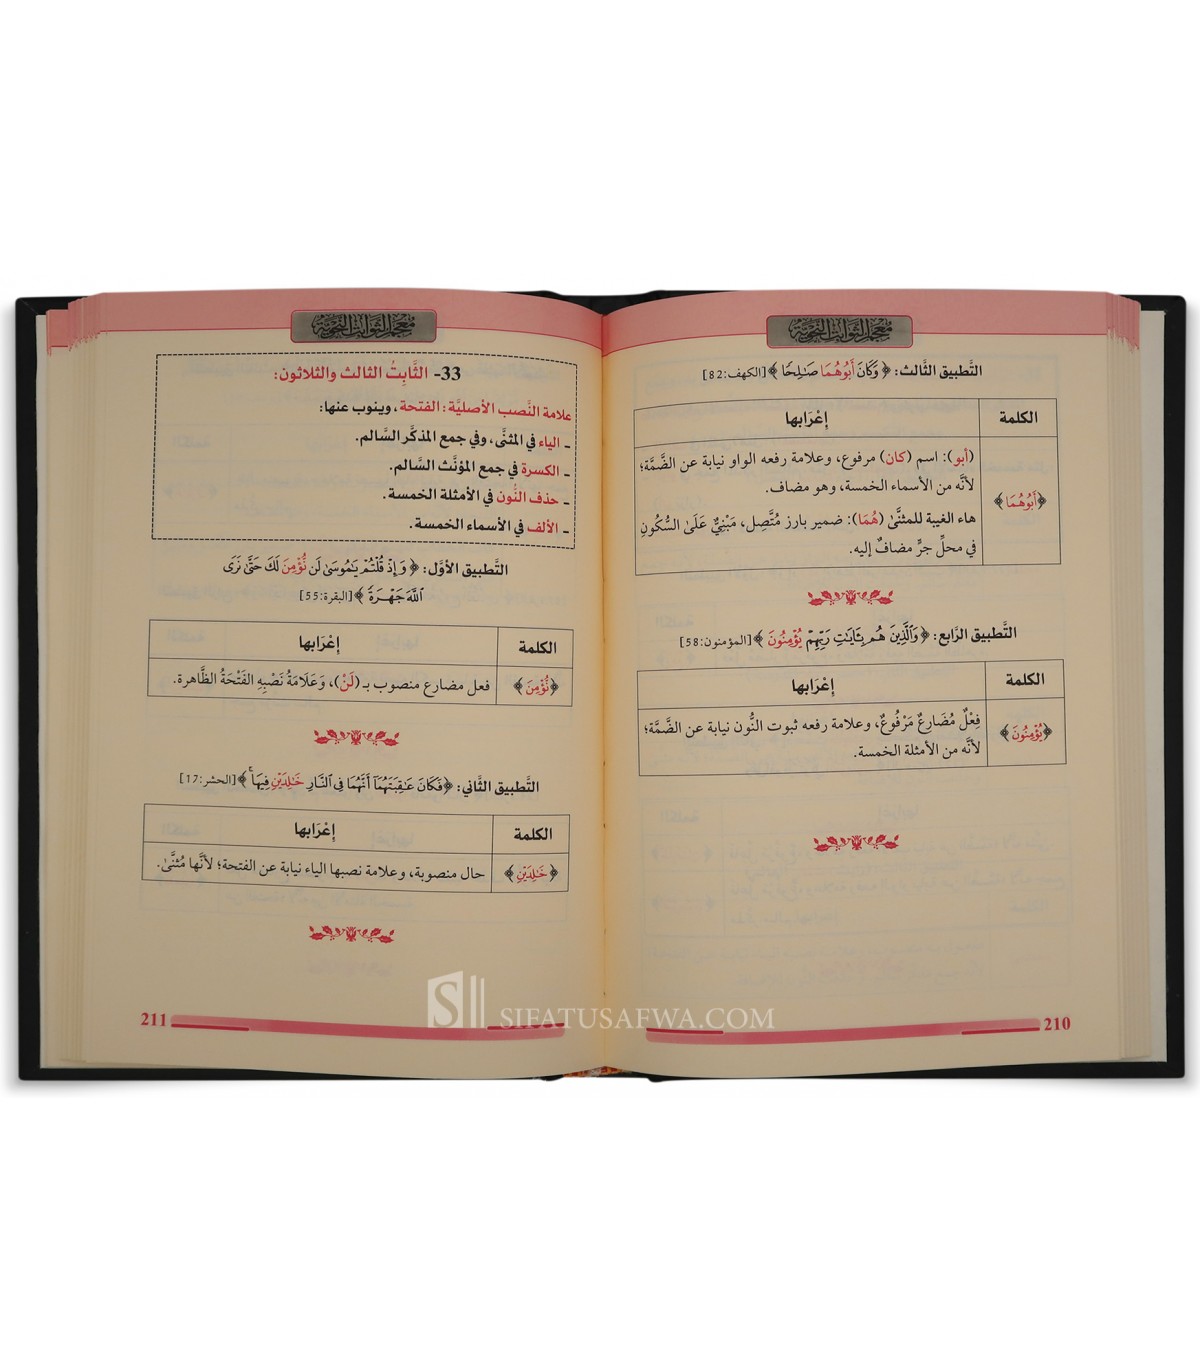 معجم الثوابت النحوية
التَّطبيق الثَّالث: ﴿ وَكَانَ أَبُوهُمَا صَٰلِحًا ﴾ [الكهف:82]
الكلمة إعْرَابها
﴿أَبُوهُمَا﴾ (أبو): اسم (كان) مرفوع، وعلامة رفعه الواو نيابة عن الضَّمَّة؛
لأنَّه من الأسماء الخمسة، وهو مضاف.
هاء الغيبة للمثنَّىٰ (هُمَا): ضمير بارز مُتَّصِل، مَبْنِيٌّ عَلَىٰ السُّكُونِ
في محلِّ جرٍّ مضافٌ إليه.
التَّطبيق الرَّابع: ﴿ وَٱلَّذِينَ هُم بِـَٔايَٰتِ رَبِّهِمۡ يُؤۡمِنُونَ ﴾ [المؤمنون:58]
الكلمة إعْرَابها
﴿يُؤۡمِنُونَ﴾ فِعْلٌ مُضَارِعٌ مَرْفُوعٌ، وعلامة رفعه ثبوت النُّون نيابة عن الضَّمَّة؛
لأنَّه من الأمثلة الخمسة.
210
معجم الثوابت النحوية
33- الثَّابِتُ الثالث والثلاثون:
علامة النَّصب الأصليَّة: الفتحة، وينوب عنها:
ـ الياء في المثنَّى، وفي جمع المذكَّر السَّالم.
ـ الكسرة في جمع المؤنَّث السَّالم.
ـ حذف النُّون في الأمثلة الخمسة.
ـ الألف في الأسماء الخمسة.
التَّطبيق الأوَّل: ﴿ وَإِذۡ قُلۡتُمۡ يَٰمُوسَىٰ لَن نُّؤۡمِنَ لَكَ حَتَّىٰ نَرَى
ٱللَّهَ جَهۡرَةٗ ﴾ [البقرة:55]
الكلمة إعْرَابها
﴿نُّؤۡمِنَ﴾ فعل مضارع منصوب بـ (لَنْ)، وَعَلَامَةُ نَصْبِهِ الفَتْحَةُ الظَّاهرة.
التَّطبيق الثَّاني: ﴿فَكَانَ عَٰقِبَتَهُمَآ أَنَّهُمَا فِي ٱلنَّارِ خَٰلِدَيۡنِ فِيهَاۚ ﴾ [الحشر:17]
الكلمة إعْرَابها
﴿خَٰلِدَيۡنِ﴾ حال منصوبة، وعلامة نصبها الياء نيابة عن الفتحة؛ لأنَّها مُثنَّىٰ.
211
SIFATUSAFWA.COM